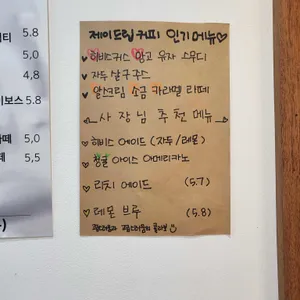 티 5.8
5,0
4,8
이보스 5.8
5,0
5,5
제이드립 커피 인기메뉴♡
♥ 히비스커스 망고 유자 스무디
♥ 자두 살구 주스
♥ 알스크림 소금 카라멜 라떼
사장님 추천 메뉴
♡ 히비스 에이드 (자두/레몬)
♡ 청귤 아이스 아메리카노
♡ 리치 에이드 (5.7)
♡ 레몬 브루 (5.8)